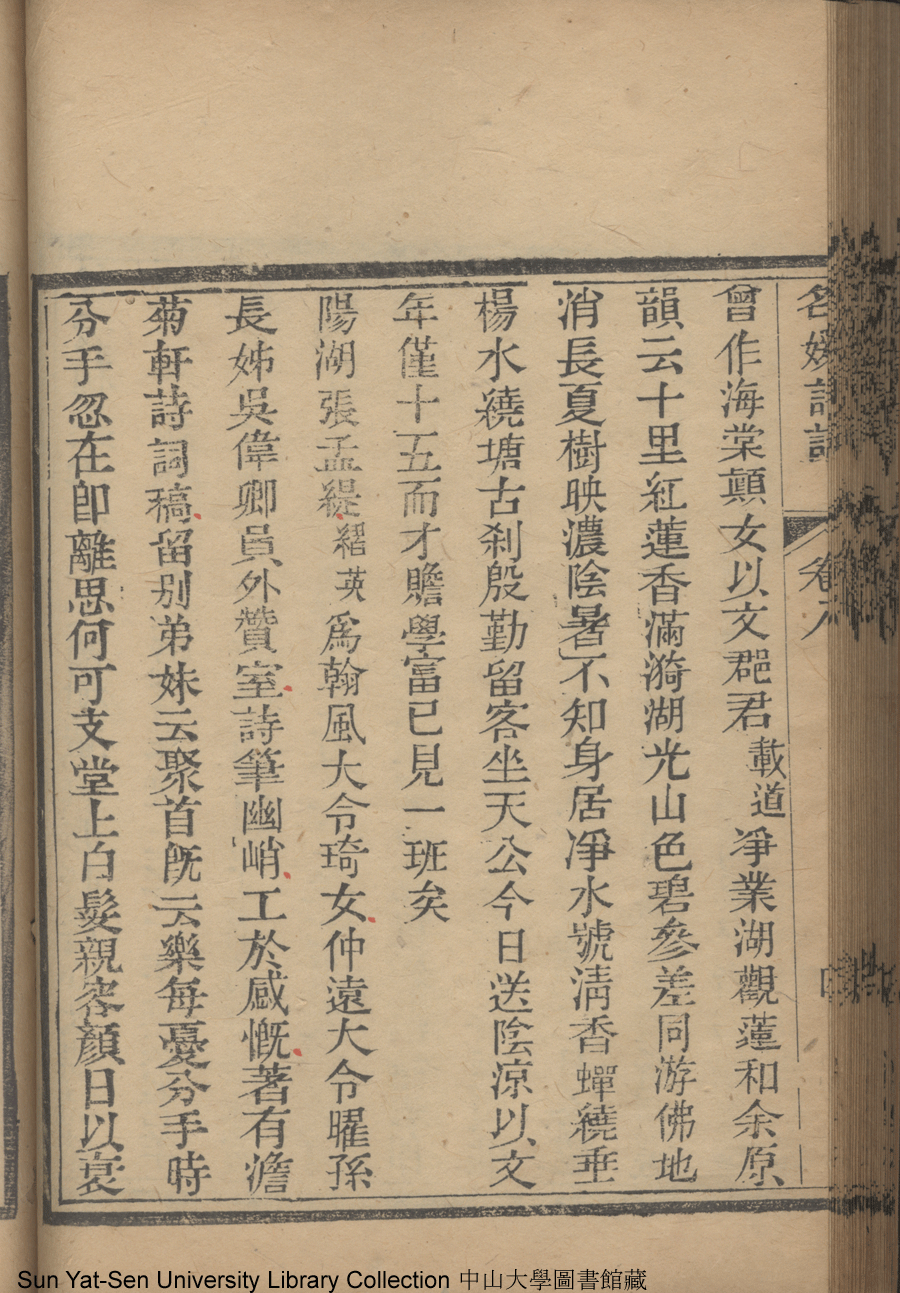 名媛詩話 卷八
曾作海棠顛女以文郡君載道淨業湖觀蓮和余原
韻云十里紅蓮香滿漪湖光山色碧參差同游佛地
消長夏樹映濃陰暑不知身居淨水號淸香蟬繞垂
楊水繞塘古刹殷勤留客坐天公今日送陰凉以文
年僅十五而才贍學富已見一班矣
陽湖張孟緹䌌英爲翰風大令琦女仲遠大令曜孫
長姊吳偉卿員外贊室詩筆幽峭工於感慨著有澹
菊軒詩詞稿留別弟妹云聚首旣云樂每憂分手時
分手忽在卽離思何可支堂上白髮親容顏日以衰
Sun Yat-Sen University Library Collection 中山大學圖書館藏